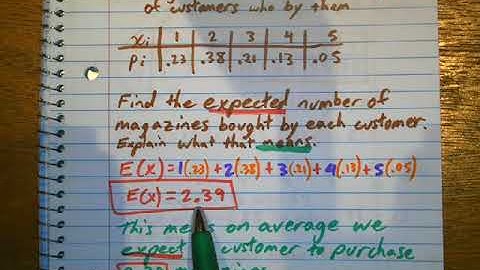 of customers who by them
xi 1 2 3 4 5
pi .23 .38 .21 .13 .05
Find the expected number of
magazines bought by each customer.
Explain what that means.
E(x)=1(.23)+2(.38)+3(.21)+4(.13)+5(.05)
E(x)=2.39
This means on average we
expect customer to purchase
magazines